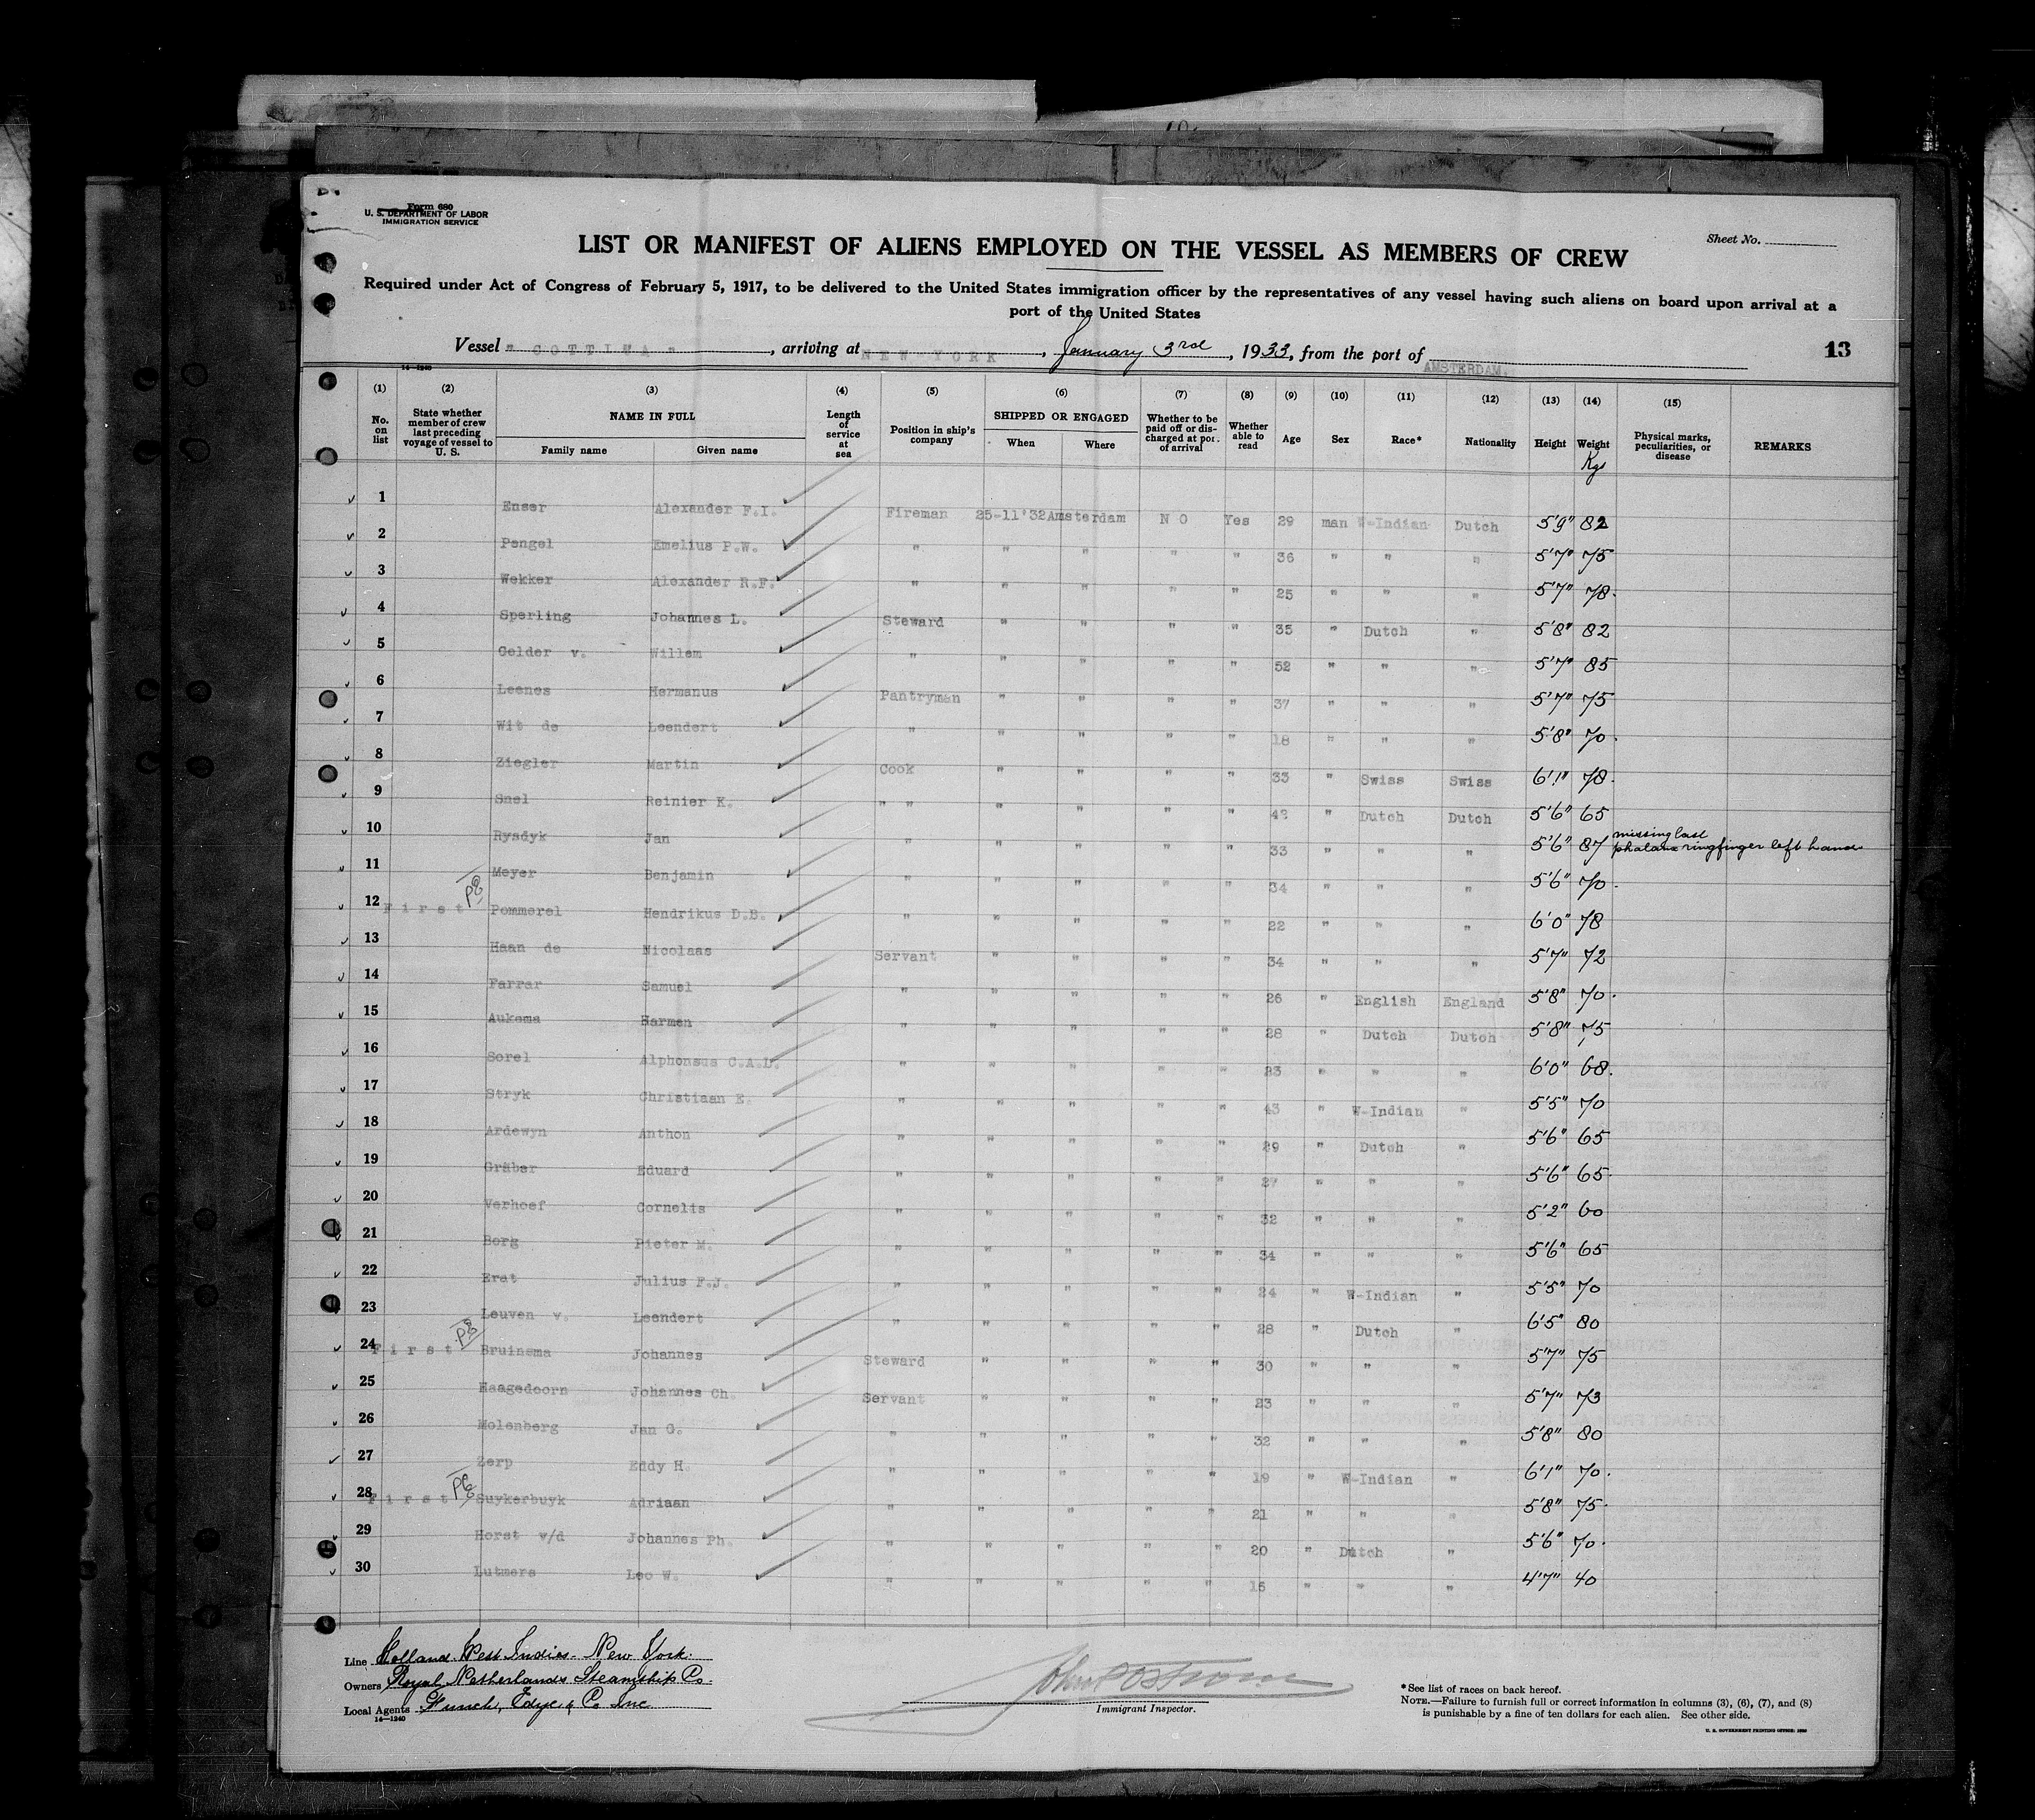 Form 680
U. S. DEPARTMENT OF LABOR
IMMIGRATION SERVICE
Sheet No.
LIST OR MANIFEST OF ALIENS EMPLOYED ON THE VESSEL AS MEMBERS OF CREW
Required under Act of Congress of February 5, 1917, to be delivered to the United States immigration officer by the representatives of any vessel having such aliens on board upon arrival at a
port of the United States
Vessel " COTTICA ", arriving at NEW YORK, January 3rd, 1933, from the port of AMSTERDAM. 13
14-1240
(1) (2) (3) (4) (5) (6) (7) (8) (9) (10) (11) (12) (13) (14) (15)
No. on list State whether member of crew last preceding voyage of vessel to U. S. NAME IN FULL Family name Given name Length of service at sea Position in ship's company SHIPPED OR ENGAGED When Where Whether to be paid off or discharged at port of arrival Whether able to read Age Sex Race* Nationality Height Weight Kgs Physical marks, peculiarities, or disease REMARKS
1 Enser Alexander F.I. Fireman 25-11'32 Amsterdam N O Yes 29 man W-Indian Dutch 5'9" 82
2 Pengel Emelius P.W. " " " " " 36 " " " 5'7" 75
3 Wekker Alexander R.F. " " " " " 25 " " " 5'7" 78.
4 Sperling Johannes L. Steward " " " " 35 " Dutch " 5'8" 82
5 Gelder v. Willem " " " " " 52 " " " 5'7" 85
6 Leenes Hermanus Pantryman " " " " 37 " " " 5'7" 75
7 Wit de Leendert " " " " " 18 " " " 5'8" 70.
8 Ziegler Martin Cook " " " " 33 " Swiss Swiss 6'1" 78.
9 Snel Reinier K. " " " " " " 42 " Dutch Dutch 5'6" 65
10 Rysdyk Jan " " " " " 33 " " " 5'6" 87 missing last phalanx ringfinger left hand
11 Meyer Benjamin " " " " " 34 " " " 5'6" 70.
12 First Pommerel Hendrikus D.B. " " " " " 22 " " " 6'0" 78
13 Haan de Nicolaas Servant " " " " 34 " " " 5'7" 72
14 Farrar Samuel " " " " " 26 " English England 5'8" 70.
15 Aukema Harmen " " " " " 28 " Dutch Dutch 5'8" 75
16 Sorel Alphonsus C.A.L. " " " " " 23 " " " 6'0" 68.
17 Stryk Christiaan E. " " " " " 43 " W-Indian " 5'5" 70
18 Ardewyn Anthon " " " " " 29 " Dutch " 5'6" 65
19 Gräber Eduard " " " " " 27 " " " 5'6" 65.
20 Verhoef Cornelis " " " " " 32 " " " 5'2" 60
21 Borg Pieter M. " " " " " 34 " " " 5'6" 65
22 Erat Julius F.J. " " " " " 24 " W-Indian " 5'5" 70
23 Leuven v. Leendert " " " " " 28 " Dutch " 6'5" 80
24 First Bruinsma Johannes Steward " " " " 30 " " " 5'7" 75
25 Haagedoorn Johannes Ch. Servant " " " " 23 " " " 5'7" 73
26 Molenberg Jan G. " " " " " 32 " " " 5'8" 80
27 Zerp Eddy H. " " " " " 19 " W-Indian " 6'1" 70.
28 First Suykerbuyk Adriaan " " " " " 21 " " " 5'8" 75.
29 Horst v/d Johannes Ph. " " " " " 20 " Dutch " 5'6" 70.
30 Lutmers Leo W. " " " " " 15 " " " 4'7" 40
Line Holland West Indies - New York.
Owners Royal Netherlands Steamship Co.
Local Agents Funch, Edye & Co. Inc
14-1240
Immigrant Inspector.
*See list of races on back hereof.
NOTE.—Failure to furnish full or correct information in columns (3), (6), (7), and (8)
is punishable by a fine of ten dollars for each alien. See other side.
U. S. GOVERNMENT PRINTING OFFICE